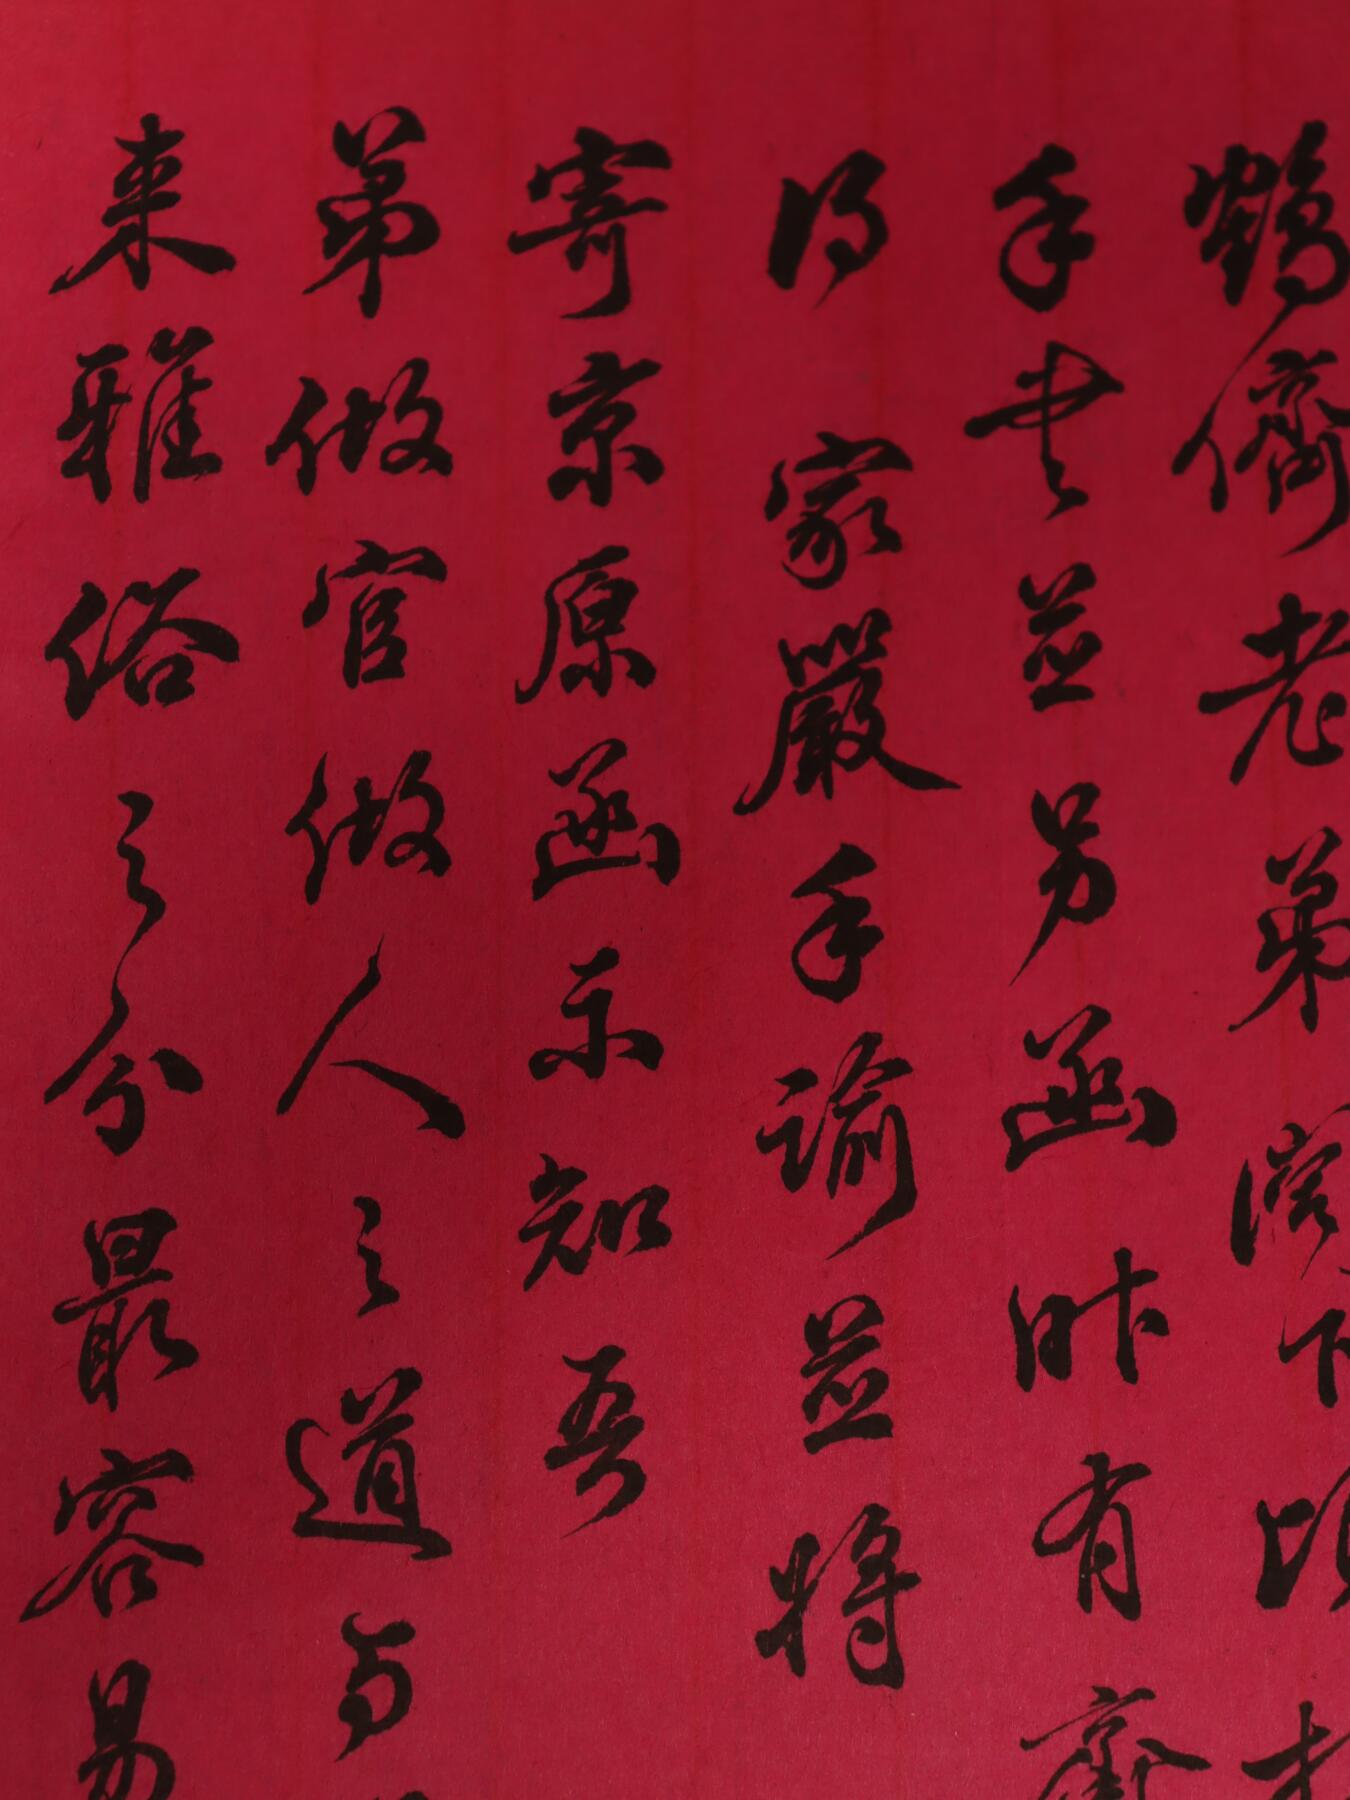 鶴儕老弟閣下頃
手書並另函昨有齋
得家嚴手諭並將
寄京原函示知吾
弟做官做人之道与
来雅俗之分最容易